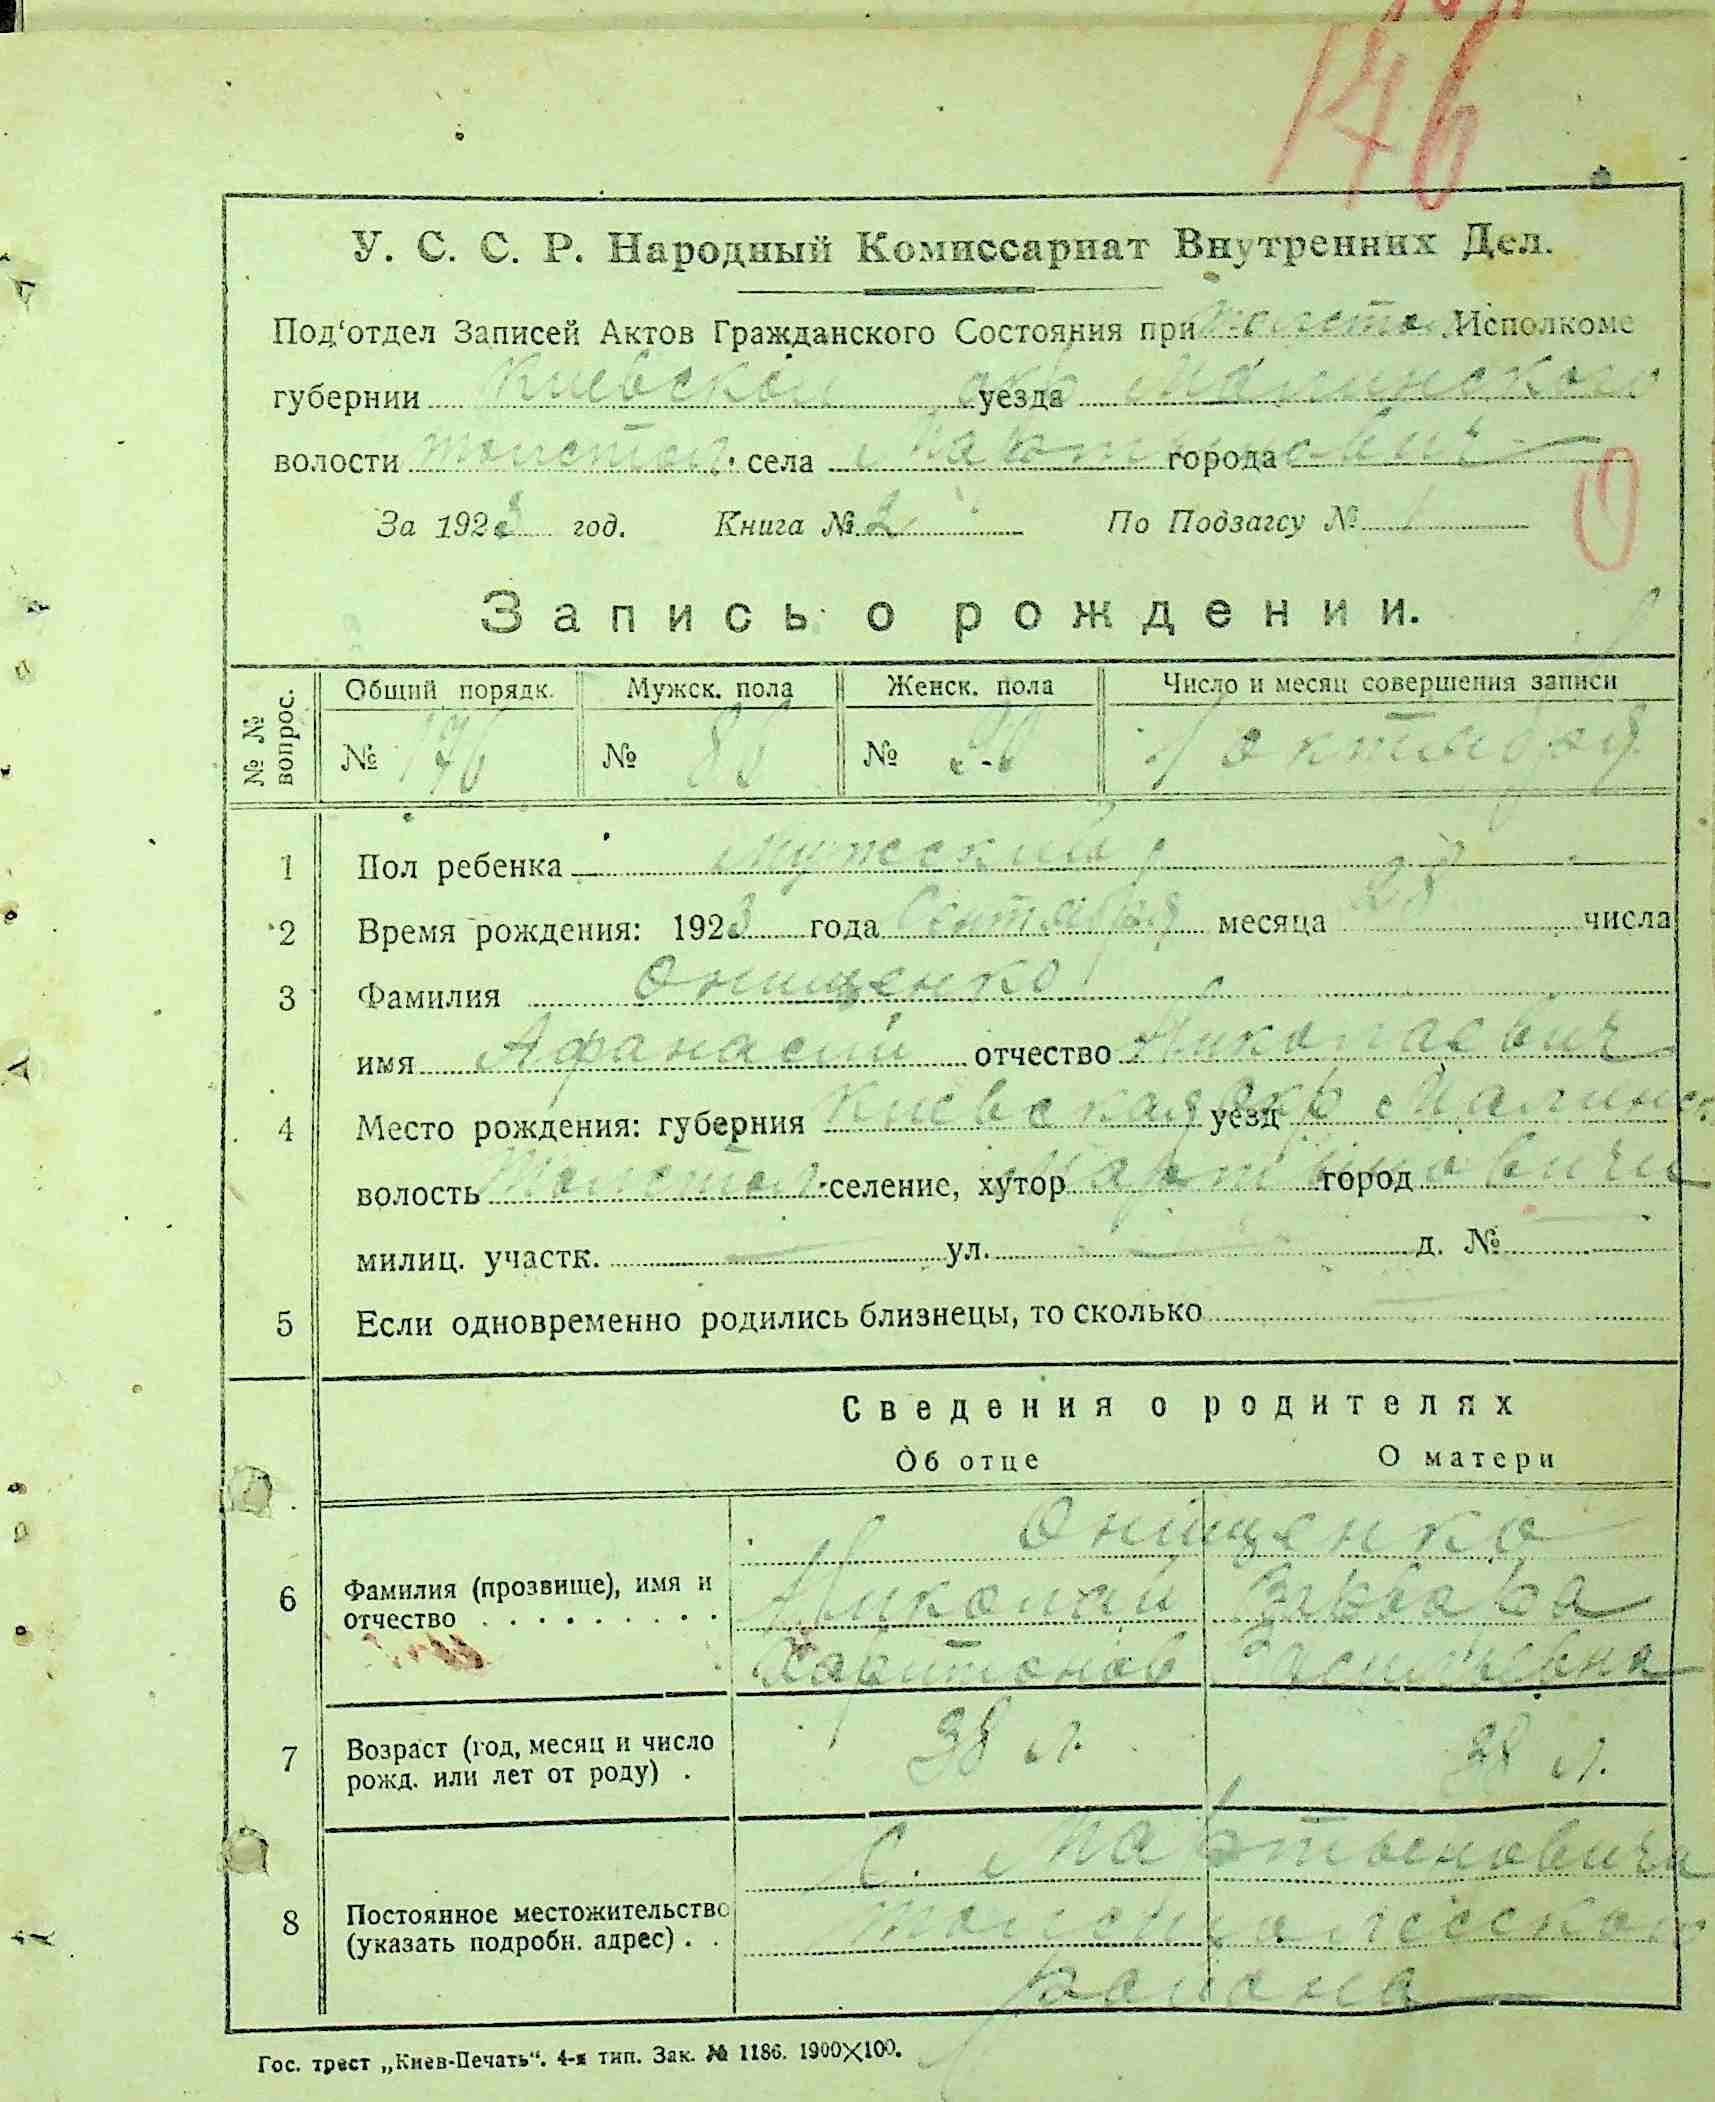 146
У. С. С. Р. Народный Комиссариат Внутренних Дел.
Под'отдел Записей Актов Гражданского Состояния при Толсто Исполкоме
губернии Киевской окр уезда Малинского
волости Толстол. села Мартыновичи города
За 1923 год. Книга № 2 По Подзагсу № 1
Запись о рождении.
№ № вопрос. Общий порядк. Мужск. пола Женск. пола Число и месяц совершения записи
№ 146 № 86 № 1 октября
1 Пол ребенка мужеский
2 Время рождения: 1923 года Сентября месяца 28 числа
3 Фамилия Онищенко
имя Афанасий отчество Николаевич
4 Место рождения: губерния Киевская окр уезд Малинск
волость Толстол. селение, хутор Мартыновичи город
милиц. участк. ул. д. №
5 Если одновременно родились близнецы, то сколько
Сведения о родителях
Об отце О матери
Онищенко
6 Фамилия (прозвище), имя и отчество Николай Варвара
Харитонов Васильевна
7 Возраст (год, месяц и число рожд. или лет от роду) . 38 л. 38 л.
С. Мартыновичи
8 Постоянное местожительство (указать подробн. адрес) . . Толстолесском
района
Гос. трест „Киев-Печать“. 4-я тип. Зак. № 1186. 1900×100.